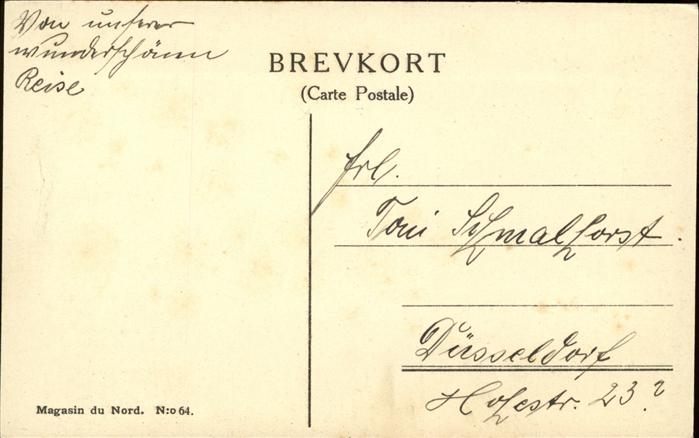 Von unserer
wunderschönen
Reise
BREVKORT
(Carte Postale)
Frl.
Toni Schmalhorst.
Düsseldorf
23
Magasin du Nord. N:o 64.